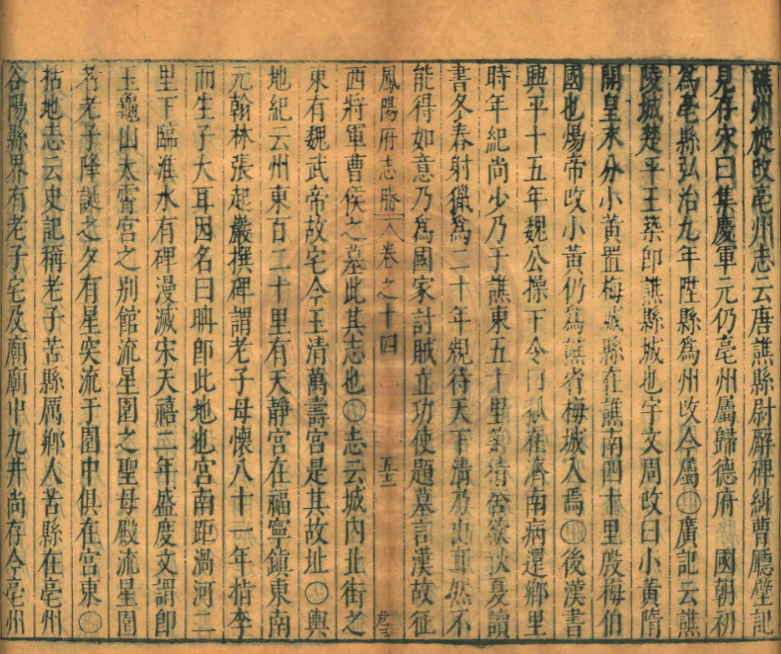 譙州旋改亳州志云唐譙縣尉廨碑糾曹廳壁記
見存宋曰集慶軍元仍亳州屬歸德府 國朝初
為亳縣弘治九年陞縣為州改今屬〇廣記云譙
陵城楚平王築卽譙縣城也宇文周改曰小黃隋
開皇末分小黃置梅城縣在譙南四十里殷梅伯
國也煬帝改小黃仍為譙省梅城入焉〇後漢書
興平十五年魏公操下令曰孤在濟南病還鄉里
時年紀尚少乃于譙東五十里築精舍欲秋夏讀
書冬春射獵為二十年規待天下清乃出耳然不
能得如意乃為國家討賊立功使題墓言漢故征
鳳陽府志勝 卷之十四 五三
西將軍曹侯之墓此其志也〇志云城內北街之
東有魏武帝故宅今玉清萬壽宮是其故址〇輿
地紀云州東百二十里有天靜宮在福寧鎮東南
元翰林張起巖撰碑謂老子母懷八十一年指李
而生子大耳因名曰聃卽此地也宮南距渦河二
里下臨淮水有碑漫滅宋天禧二年盛度文謂卽
玉龜山太霄宮之別館流星園之聖母殿流星園
者老子降誕之夕有星突流于園中俱在宮東〇
括地志云史記稱老子苦縣厲鄉人苦縣在亳州
谷陽縣界有老子宅及廟廟中九井尚存今亳州